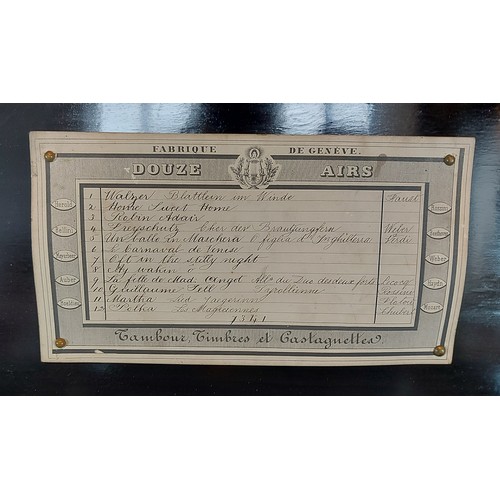 FABRIQUE DE GENÈVE.
DOUZE AIRS
1 Walzer Blättlein im Winde Faust
2 Home Sweet Home
3 Robin Adair
4 Freyschutz Chor der Brautjungfern Weber
5 Un ballo in Maschera O figlia d'Inghilterra Verdi
6 Carnaval de Venise
7 Oft in the stilly night
8 My
9 La fille de Mad. Angot des deux forts Lecocq
10 Guillaume Tell Tyrolienne Rossini
11 Martha Lied Flotow
12
1341
Herold
Bellini
Auber
Weber
Haydn
Mozart
Tambour, Timbres, et Castagnettes.